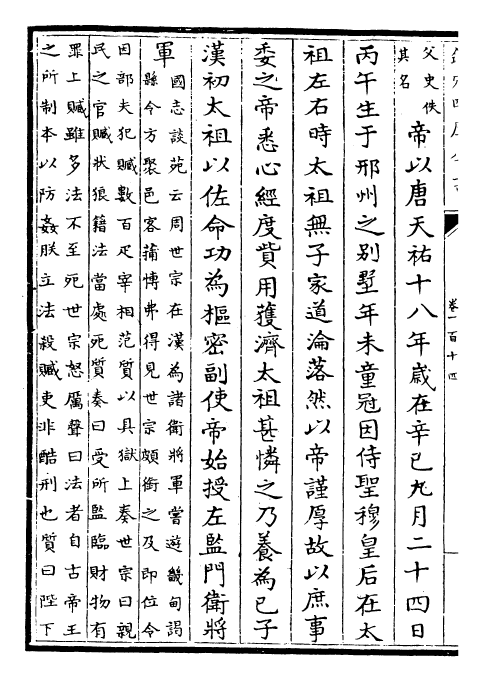 卷一百十四
父史佚
其名
帝以唐天祐十八年歲在辛巳九月二十四日
丙午生于邢州之别墅年未童冠因侍聖穆皇后在太
祖左右時太祖無子家道淪落然以帝謹厚故以庶事
委之帝悉心經度貲用獲濟太祖甚憐之乃養為己子
漢初太祖以佐命功為樞密副使帝始授左監門衛將
軍
國志談苑云周世宗在漢為諸衛將軍嘗遊畿甸謁
縣令方聚邑客蒲博弗得見世宗頗銜之及即位令
因部夫犯贓數百疋宰相范質以具獄上奏世宗曰親
民之官贓狀狼籍法當處死質奏曰受所監臨財物有
罪上贓雖多法不至死世宗怒厲聲曰法者自古帝王
之所制本以防姦朕立法殺贓吏非酷刑也質曰陛下